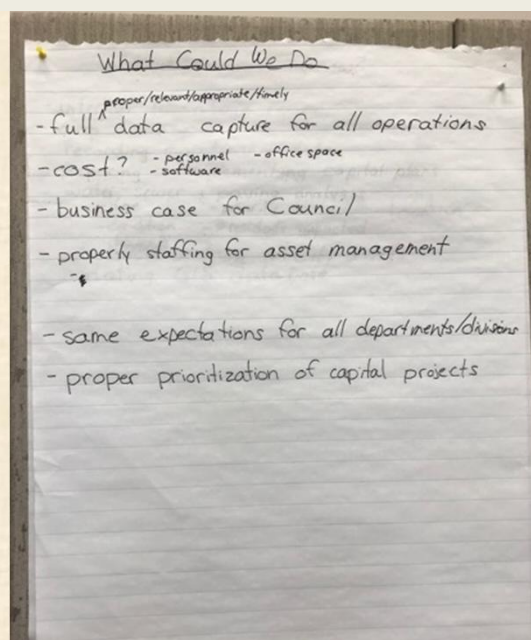 What Could We Do
proper/relevant/appropriate/timely
- full ^ data capture for all operations
- cost? - personnel - office space
- software
- business case for Council
- properly staffing for asset management
- same expectations for all departments/divisions
- proper prioritization of capital projects